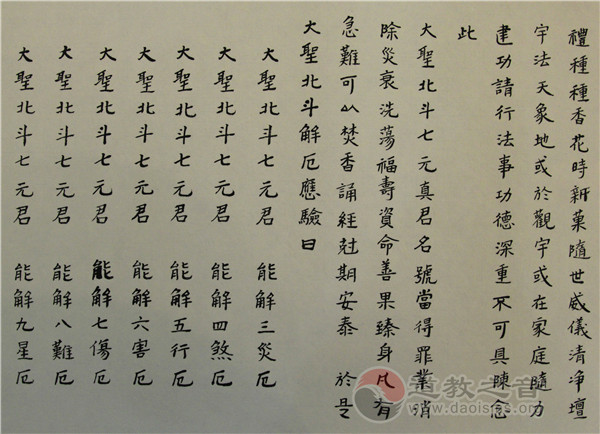 禮種種香花時新菓隨世威儀清净壇
宇法天象地或於觀宇或在家庭隨力
建功請行法事功德深重不可具陳念
此
大聖北斗七元真君名號當得罪業消
除災衰洗蕩福壽資命善果臻身凡有
急難可以焚香誦經尅期安泰 於是
大聖北斗解厄應驗曰
大聖北斗七元君 能解三災厄
大聖北斗七元君 能解四煞厄
大聖北斗七元君 能解五行厄
大聖北斗七元君 能解六害厄
大聖北斗七元君 能解七傷厄
大聖北斗七元君 能解八難厄
大聖北斗七元君 能解九星厄
道教之音
www.daoisms.org